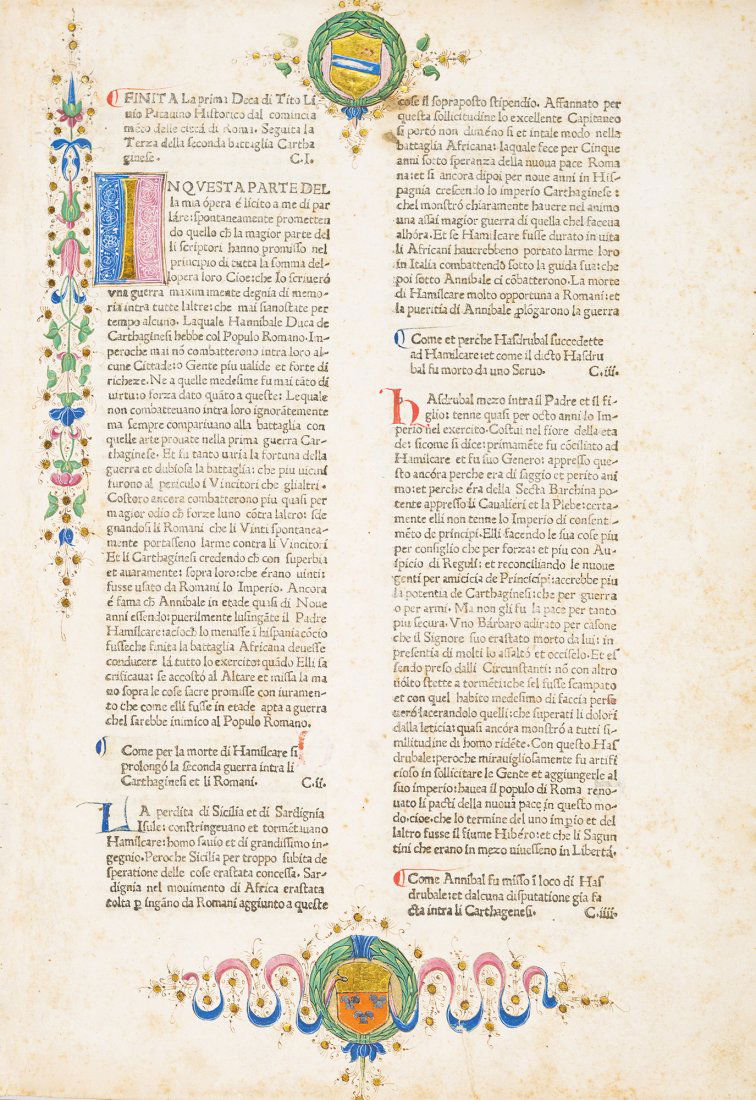 FINITA La prima Deca di Tito Li-
uio Patauino Historico dal comincia
mẽto delle cittá di Roma. Seguita la
Terza della seconda battaglia Cartha
ginese. C.I.
INQVESTA PARTE DEL
la mia ópera é licito a me di par
láre: spontaneamente prometten
do quello cħ la magior parte del
li scriptori hanno promisso nel
principio di tutta la somma del-
lopera loro Cioe: che Io scriueró
vna guerra maximamente degnia di memo-
ria intra tutte laltre: che mai sianostate per
tempo alcuno. Laquale Hannibále Duca de
Carthaginesi hebbe col Populo Romano. Im-
peroche mai nõ combatterono intra loro al-
cune Cittade: o Gente piu valide et forte di
richeze. Ne a quelle medesime fu mai tãto di
uirtuto forza dato quãto a queste: Lequale
non combatteuano intra loro ignorãtemente
ma sempre compariuano alla battaglia con
quelle arte prouate nella prima guerra Car-
thaginese. Et fu tanto uária la fortuna della
guerra et dubiosa la battaglia: che piu uicini
furono al periculo i Vincitori che glialtri.
Costoro ancora combatterono piu quasi per
magior odio cħ forze luno cõtra laltro: sde
gnandosi li Romani che li Vinti spontanea-
mente portasseno larme contra li Vincitori
Et li Carthaginesi credendo cħ con superbia
et auaramente: sopra loro: che érano uinti:
fusse usato da Romani lo Imperio. Ancora
é fama cħ Annibále in etade quasi di Noue
anni essendo: puerilmente lusingãte il Padre
Hamilcáre: acioch lo menasse ĩ hispania cõcio
fusseche finita la battaglia Africana deuesse
conducere lá tutto lo exercito: quãdo Elli sa
crificaua: se accostó al Altare et missa la ma
no sopra le cose sacre promisse con iuramen-
to che come elli fusse in etade apta a guerra
chel sarebbe inimico al Populo Romano.
Come per la morte di Hamilcare si
prolongó la seconda guerra intra li
Carthaginesi et li Romani. C.ii.
LA perdita di Sicilia et di Sardignia
Isule: constringeuano et tormẽtauano
Hamilcare: homo sauio et di grandissimo in-
gegnio. Peroche Sicilia per troppo subita de
speratione delle cose erastata concessa. Sar-
dignia nel mouimento di Africa erastata
tolta p ingãno da Romani aggiunto a queste
cose il sopraposto stipendio. Affannato per
questa sollicitudine lo excellente Capitaneo
si portó non dumẽno si et intale modo nella
battaglia Africana: laquale fece per Cinque
anni sotto speranza della nuoua pace Roma
na: et si ancora dipoi per noue anni in His-
pagnia crescendo lo imperio Carthaginese:
chel monstró chiaramente hauere nel animo
una assai magior guerra di quella chel faceua
alhóra. Et se Hamilcáre fusse durato in uita
li Africani haurebbeno portato larme loro
in Italia combattendo sotto la guida sua: che
poi sotto Annibále ci cõbatterono. La morte
di Hamilcáre molto opportuna a Romani: et
la pueritia di Annibále ꝓlógarono la guerra
Come et perche Hasdrubal succedette
ad Hamilcare: et come il dicto Hasdru
bal fu morto da uno Seruo. C.iii.
hAsdrubal mezo intra il Padre et il fi-
glio: tenne quasi per octo anni lo Im-
perio nel exercito. Costui nel fiore della eta
de: sicome si dice: primamẽte fu cõciliato ad
Hamilcáre et fu suo Genero: appresso que-
sto ancóra perche era di saggio et perito ani
mo: et perche éra della Secta Barchina po-
tente appresso li Caualieri et la Plebe: certa-
mente elli non tenne lo Imperio di consenti
mẽto de principi. Elli facendo le sua cose piu
per consiglio che per forza: et piu con Au-
spicio di Reguli: et reconciliando le nuoue
genti per amicicia de Principi: accrebbe piu
la potentia de Carthaginesi: che per guerra
o per armi. Ma non gli fu la pace per tanto
piu secura. Vno Bárbaro adirato per casone
che il Signore suo erastato morto da lui: in
presentia di molti lo assaltó et occiselo. Et es
sendo preso dalli Circunstanti: nõ con altro
uólto stette a tormẽti: che sel fusse scampato
et con quel habito medesimo di faccia perse
ueró lacerandolo quelli: che superati li dolori
dalla leticia: quasi ancóra monstró a tutti si-
militudine di homo ridẽte. Con questo Has
drubale: peroche mirauigliosamente fu artifi
cioso in sollicitare le Gente et aggiungerle al
suo imperio: hauea il populo di Roma reno-
uato li pacti della nuoua pace in questo mo-
do. cioe. che lo termine del uno imperio et del
laltro fusse il fiume Hibéro: et che li Sagun
tini che erano in mezo uiuesseno in Libertá.
Come Annibal fu misso ĩ loco di Has
drubale: et dalcuna disputatione gia fa
cta intra li Carthagenesi. C.iiii.